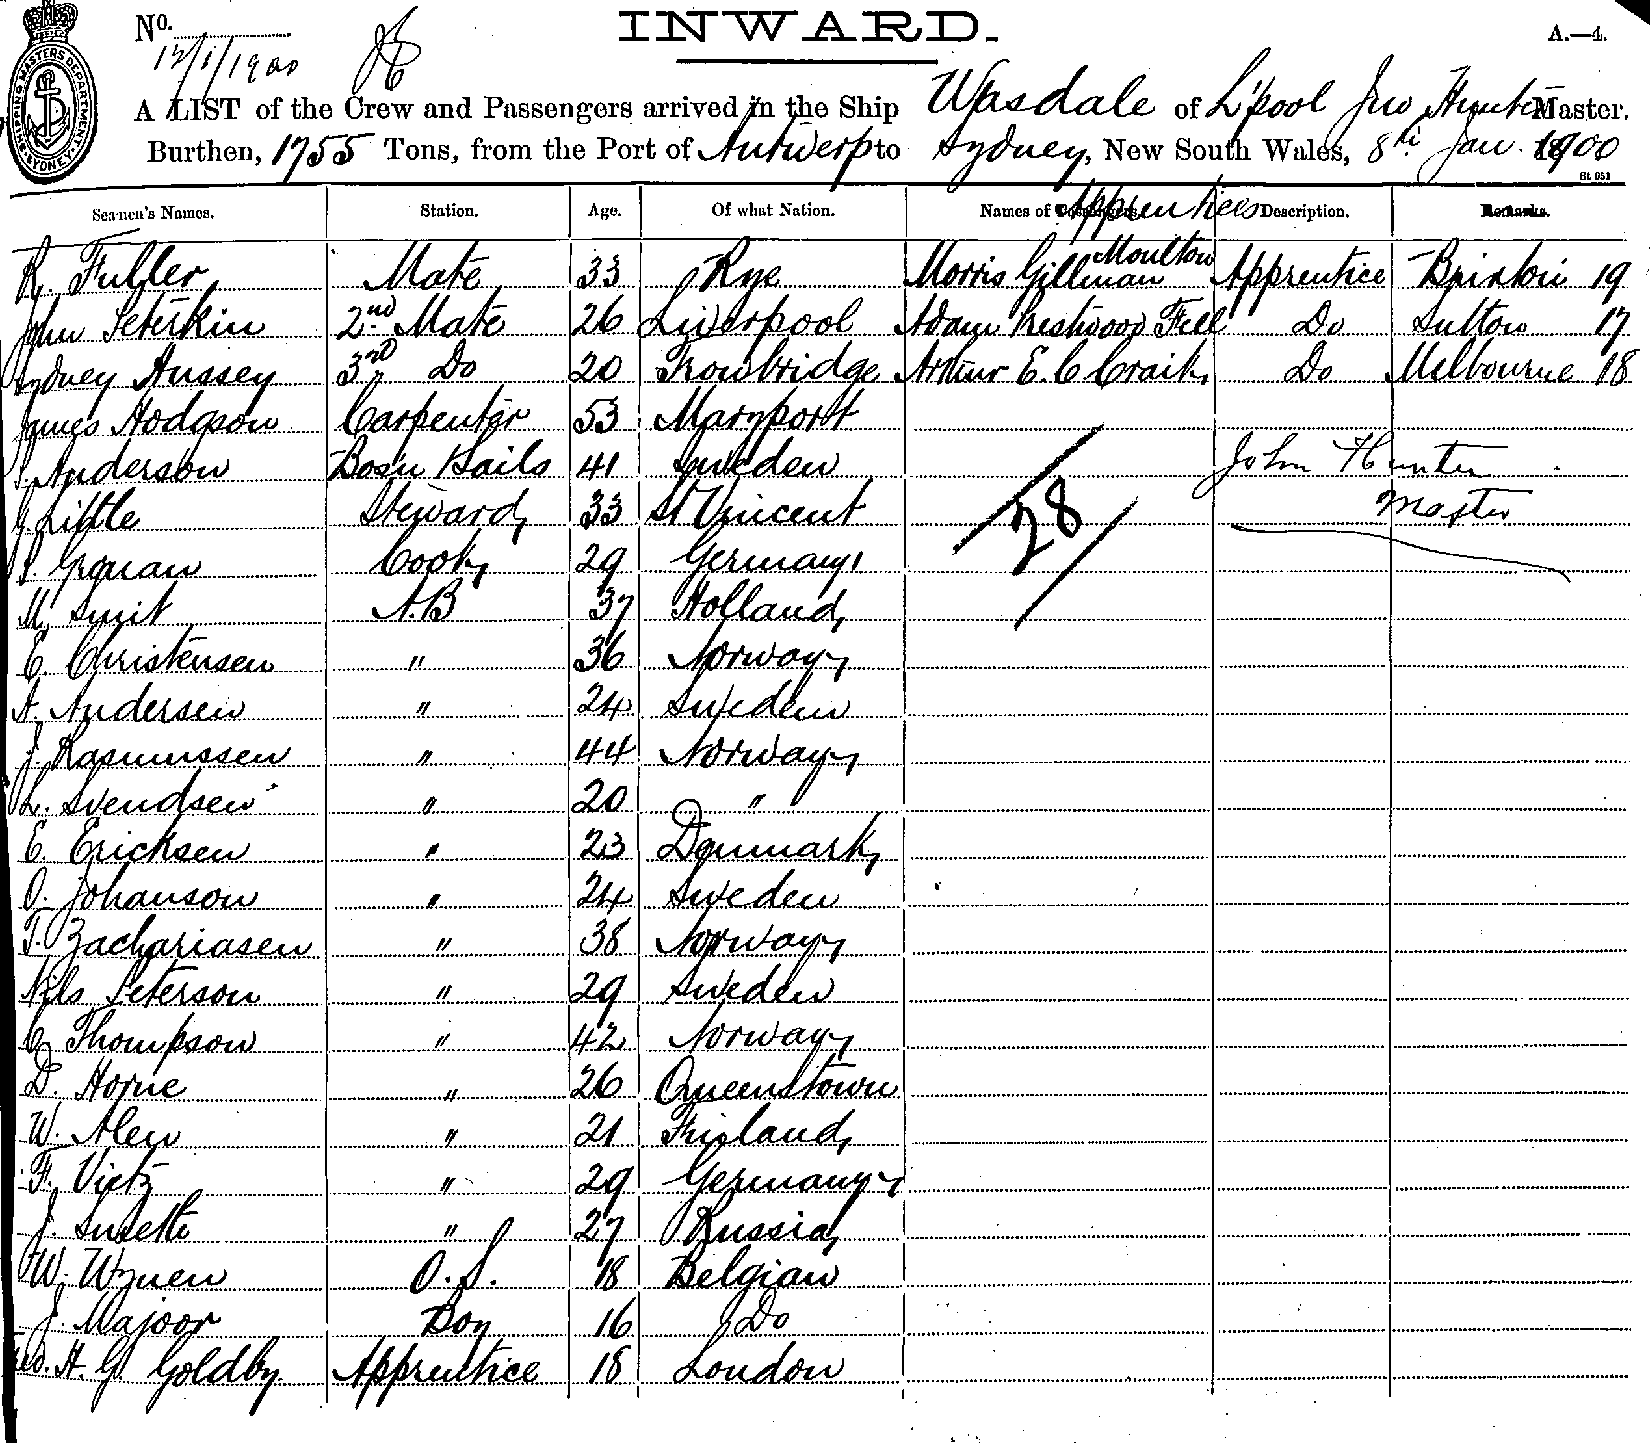 No.
INWARD.
A.—4.
12/1/1900
SHIPPING MASTERS DEPARTMENT. SYDNEY.
A LIST of the Crew and Passengers arrived in the Ship Wasdale of L'pool Jno Hunter Master.
Burthen, 1755 Tons, from the Port of Antwerp to Sydney, New South Wales, 8th Jan. 1900
Seamen's Names. Station. Age. Of what Nation. Names of Apprentices Description. Remarks.
R. Fuller Mate 33 Rye Morris Gillman Moulton Apprentice Brixton 19
John Peterkin 2nd Mate 26 Liverpool Adam Prestwood Fell Do Sutton 17
Sydney Hussey 3rd Do 20 Trowbridge Arthur E. C Craik Do Melbourne 18
James Hodgson Carpenter 53 Maryport
Anderson Bosn & Sails 41 Sweden John Hunter
Little Steward 33 St Vincent 28 Master
Cook 29 Germany
M. Smit A.B 37 Holland
E. Christensen " 36 Norway
A. Andersen " 24 Sweden
J. Rasmussen " 44 Norway
L. Svendsen " 20 "
E. Ericksen " 23 Denmark
O. Johanson " 24 Sweden
T. Zachariasen " 38 Norway
Nils Peterson " 29 Sweden
C. Thompson " 42 Norway
D. Horne " 26 Queenstown
W. Alen " 21 Finland
F. Vietz " 29 Germany
J. " 27 Russia
W. Wynen O.S. 18 Belgian
J. Majoor Boy 16 Do
Geo. H. G. Goldby Apprentice 18 London